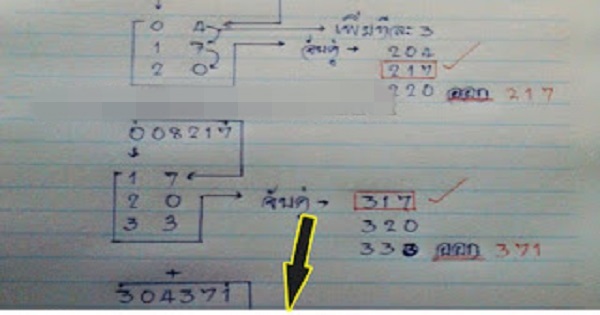 0 4 → เพิ่มทีละ 3
1 7 จับคู่ → 204
2 0 217
220 ออก 217
008217
1 7
2 0 จับคู่ → 317
3 3 320
333 ออก 371
+
304371